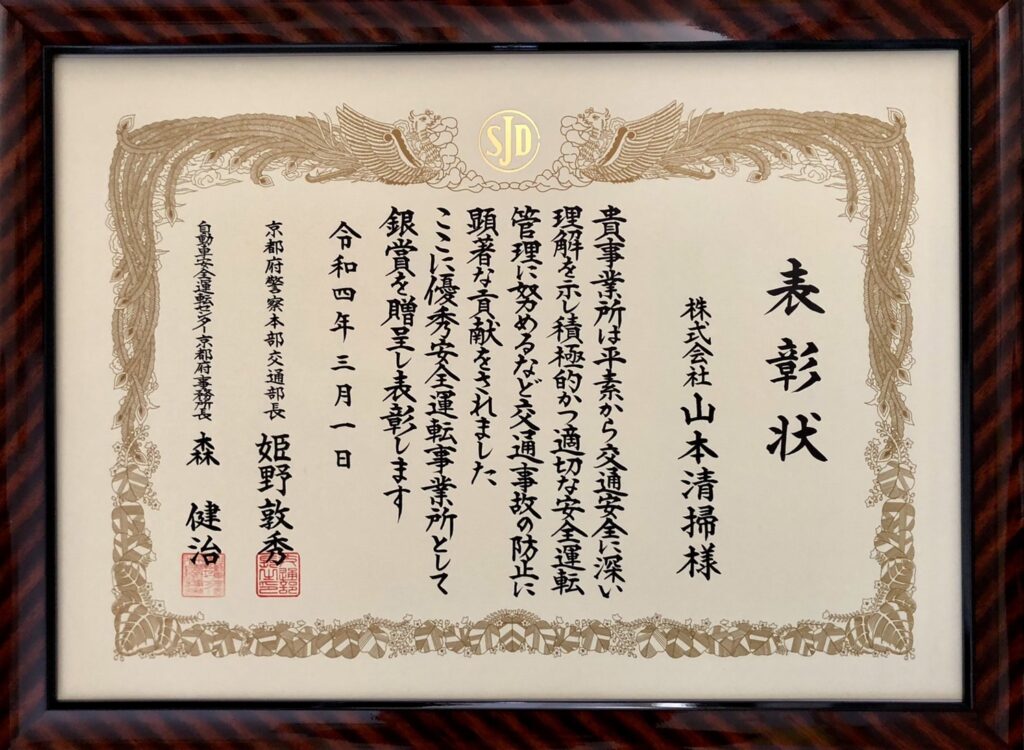 SJD
表彰状
株式会社山本清掃様
貴事業所は平素から交通安全に深い
理解を示し積極的かつ適切な安全運転
管理に努めるなど交通事故の防止に
顕著な貢献をされました
ここに優秀安全運転事業所として
銀賞を贈呈し表彰します
令和四年三月一日
京都府警察本部交通部長 姫野敦秀
自動車安全運転センター京都府事務所長 森健治